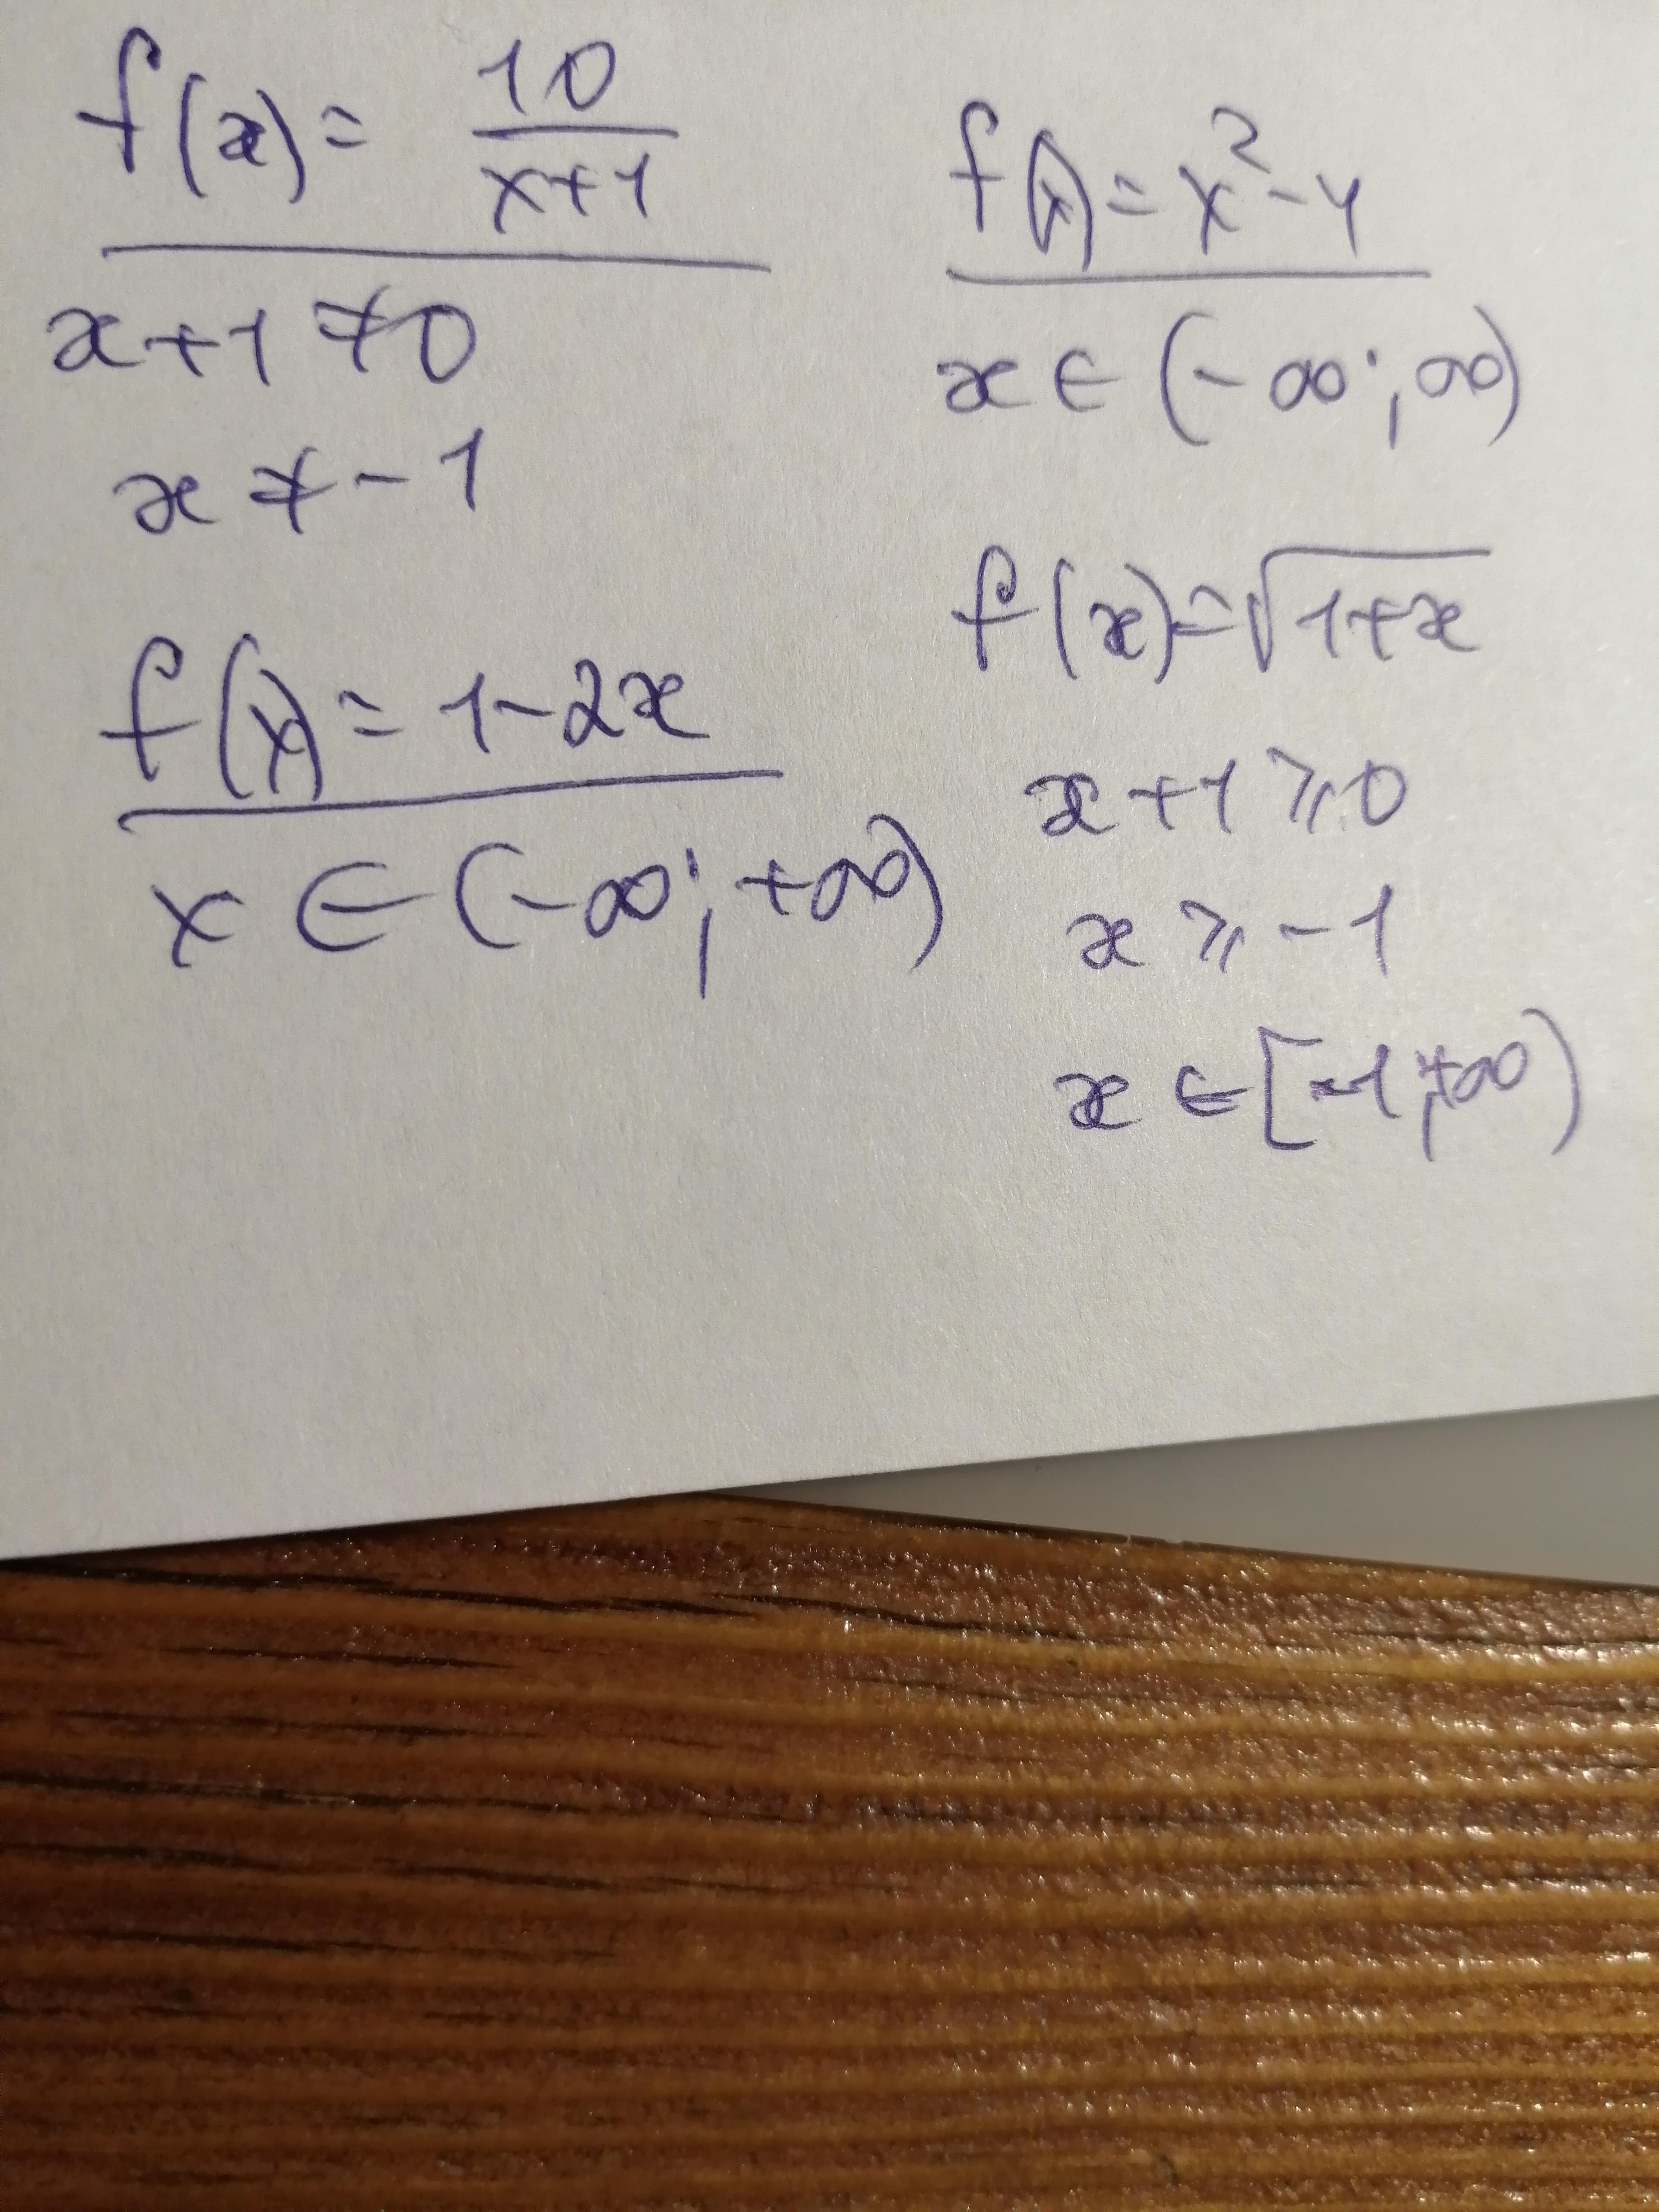 f(x) = 10/(x+1)
x+1 ≠ 0
x ≠ -1
f(x) = 1-2x
x ∈ (-∞; +∞)
f(x) = x²-4
x ∈ (-∞; ∞)
f(x) = √(1+x)
x+1 ⩾ 0
x ⩾ -1
x ∈ [-1; +∞)